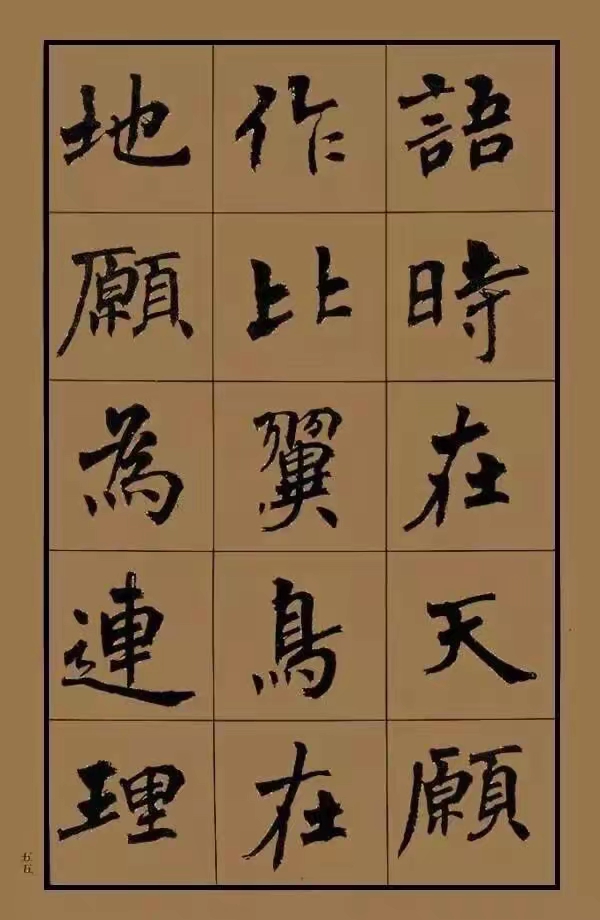 語時在天願
作比翼鳥在
地願為連理
五五